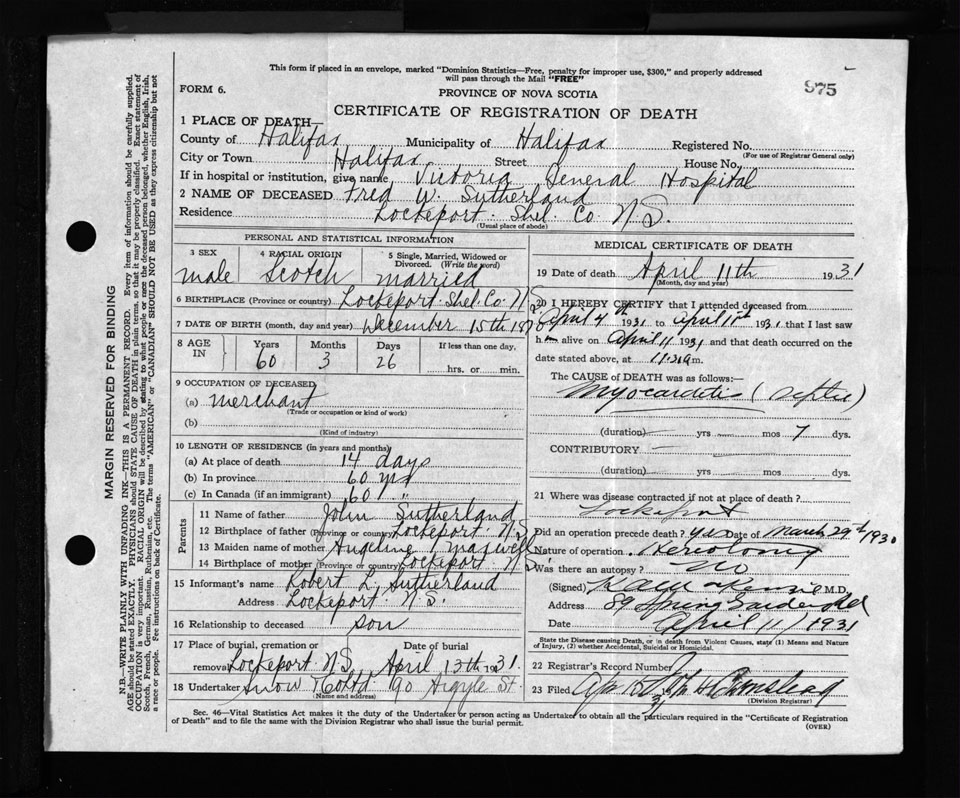 This form if placed in an envelope, marked "Dominion Statistics—Free, penalty for improper use, $300," and properly addressed
will pass through the Mail "FREE"
975
FORM 6.
PROVINCE OF NOVA SCOTIA
CERTIFICATE OF REGISTRATION OF DEATH
1 PLACE OF DEATH—
County of Halifax Municipality of Halifax Registered No.
(For use of Registrar General only)
City or Town Halifax Street House No.
If in hospital or institution, give name Victoria General Hospital
2 NAME OF DECEASED Fred W. Sutherland
Residence Lockeport. Shel. Co N.S.
(Usual place of abode)
PERSONAL AND STATISTICAL INFORMATION
3 SEX 4 RACIAL ORIGIN 5 Single, Married, Widowed or
Divorced. (Write the word)
male Scotch married
6 BIRTHPLACE (Province or country) Lockeport. Shel. Co. N.S.
7 DATE OF BIRTH (month, day and year) December 15th 1870
8 AGE IN Years Months Days If less than one day,
60 3 26 hrs. or min.
9 OCCUPATION OF DECEASED
(a) merchant
(Trade or occupation or kind of work)
(b)
(Kind of industry)
10 LENGTH OF RESIDENCE (in years and months)
(a) At place of death 14 days
(b) In province 60 yrs
(c) In Canada (if an immigrant) 60 "
Parents
11 Name of father John Sutherland
12 Birthplace of father (Province or country) Lockeport N.S.
13 Maiden name of mother Angeline Maxwell
14 Birthplace of mother (Province or country) Lockeport N.S.
15 Informant's name Robert L. Sutherland
Address Lockeport. N.S.
16 Relationship to deceased son
17 Place of burial, cremation or Date of burial
removal Lockeport. N.S. April 13th 1931.
18 Undertaker Snow Co Ltd 90 Argyle St.
(Name and address)
MEDICAL CERTIFICATE OF DEATH
19 Date of death April 11th 1931
(Month, day and year)
20 I HEREBY CERTIFY that I attended deceased from
April 4th 1931 to April 11th 1931 that I last saw
him alive on April 11 1931 and that death occurred on the
date stated above, at 11:30 a m.
The CAUSE of DEATH was as follows:
Myocarditis (septic)
(duration) yrs mos 7 dys.
CONTRIBUTORY
(duration) yrs mos dys.
21 Where was disease contracted if not at place of death?
Lockeport
Did an operation precede death? yes Date of March 29th 1930
Nature of operation
Was there an autopsy? No
(Signed) M.D.
Address 89 Spring Garden Rd
Date April 11/1931
State the Disease causing Death, or in death from Violent Causes, state (1) Means and Nature
of Injury, (2) whether Accidental, Suicidal or Homicidal.
22 Registrar's Record Number
23 Filed Apr 31
(Division Registrar)
Sec. 46—Vital Statistics Act makes it the duty of the Undertaker or person acting as Undertaker to obtain all the particulars required in the "Certificate of Registration
of Death" and to file the same with the Division Registrar who shall issue the burial permit.
(OVER)
MARGIN RESERVED FOR BINDING
N.B.—WRITE PLAINLY WITH UNFADING INK—THIS IS A PERMANENT RECORD. Every item of information should be carefully supplied.
AGE should be stated EXACTLY. PHYSICIANS should STATE CAUSE OF DEATH in plain terms, so that it may be properly classified. Exact statement of
OCCUPATION is very important. RACIAL ORIGIN will be described by stating to what people or race the deceased person belonged, whether English, Irish,
Scotch, French, German, Russian, Ruthenian, etc. The terms "AMERICAN" or "CANADIAN" SHOULD NOT BE USED as they express citizenship but not
a race or people. See instructions on back of Certificate.